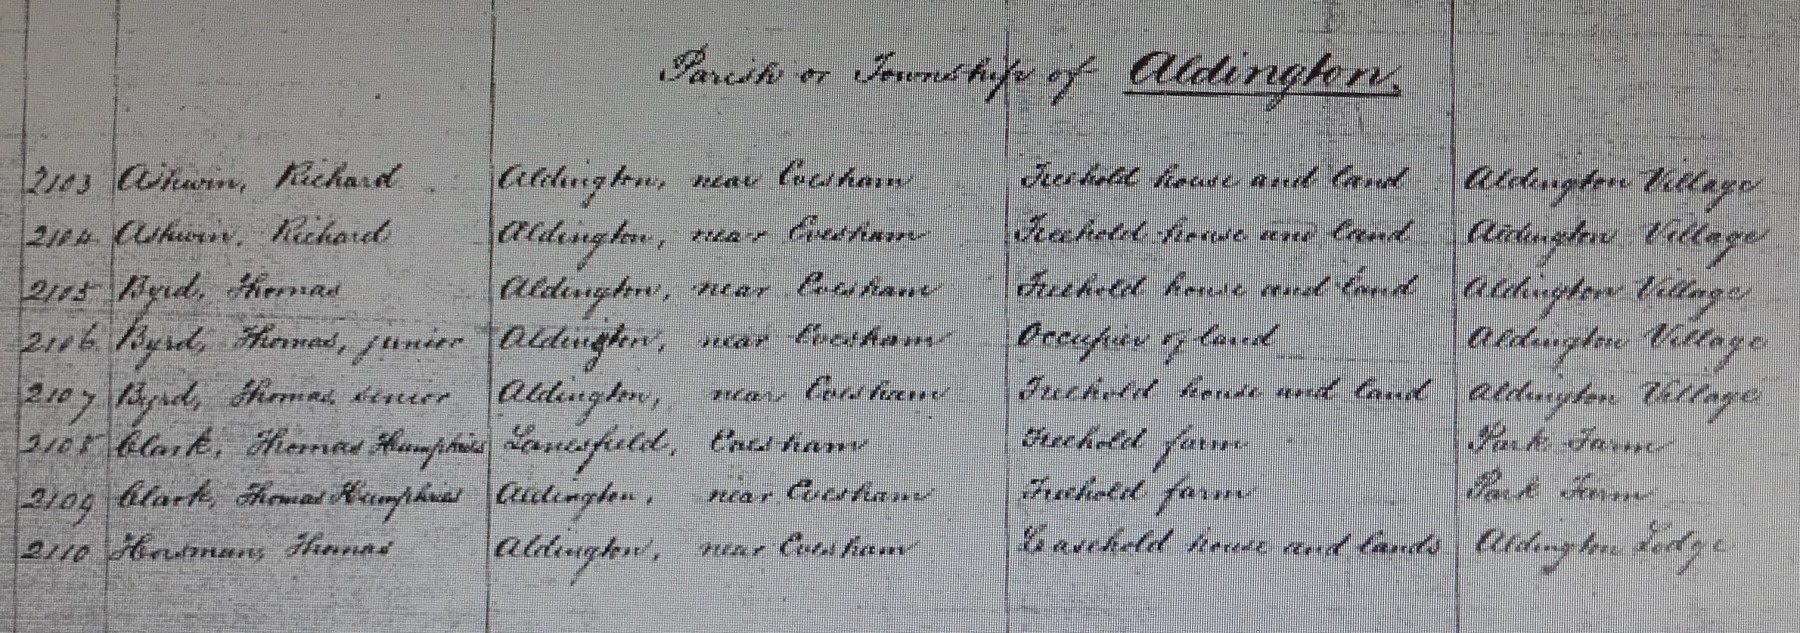 Parish or Township of Aldington.
2103 Ashwin, Richard Aldington, near Evesham Freehold house and land Aldington Village
2104 Ashwin, Richard Aldington, near Evesham Freehold house and land Aldington Village
2105 Byrd, Thomas Aldington, near Evesham Freehold house and land Aldington Village
2106 Byrd, Thomas, junior Aldington, near Evesham Occupier of land Aldington Village
2107 Byrd, Thomas, senior Aldington, near Evesham Freehold house and land Aldington Village
2108 Clark, Thomas Humphries Lanesfield, Evesham Freehold farm Park Farm
2109 Clark, Thomas Humphries Aldington, near Evesham Freehold farm Park Farm
2110 Horsman, Thomas Aldington, near Evesham Leasehold house and lands Aldington Lodge